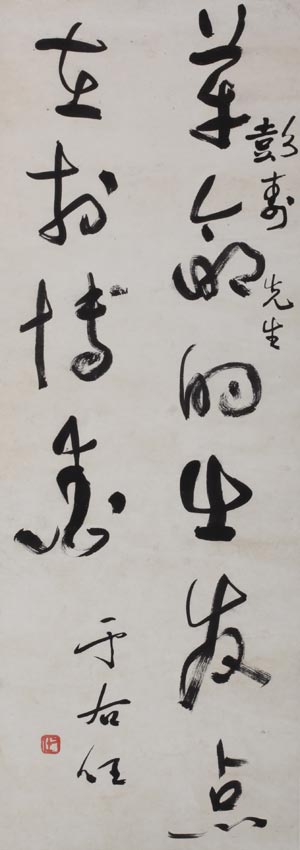 彭寿先生
革命的出发点
在於博愛
于右任